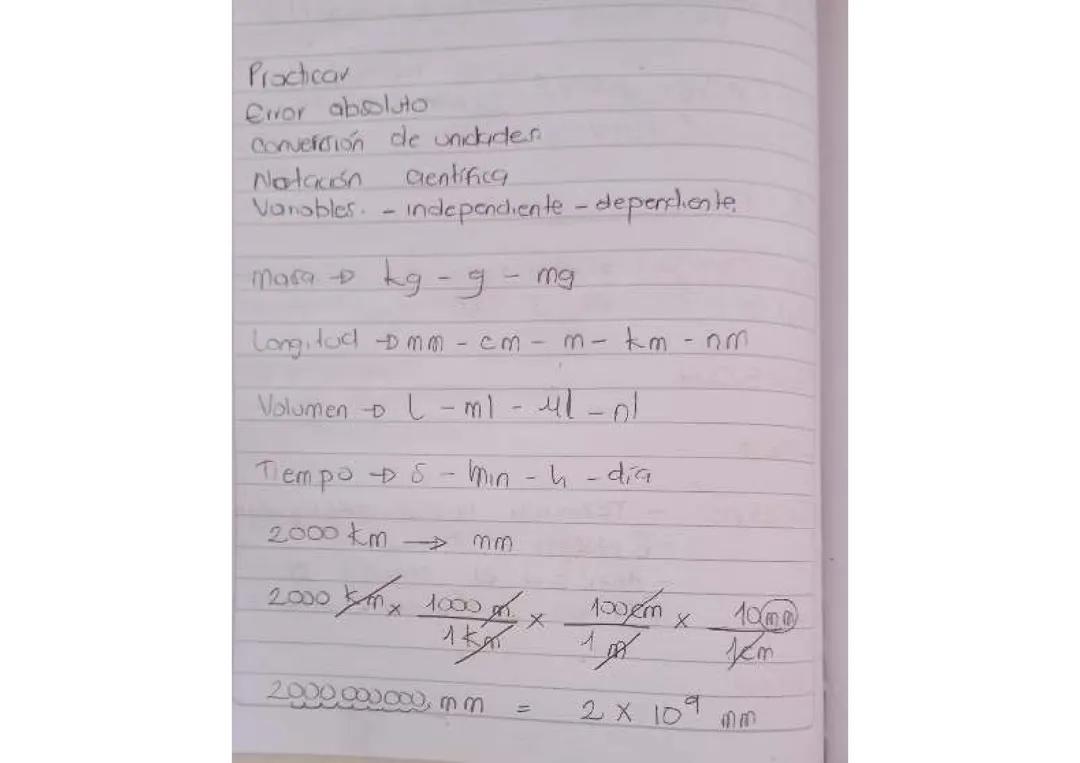 Practicar
Error absoluto
Conversión de unidades
Notación científica
Variables. - independiente - dependiente.
Masa → kg - g - mg
Longitud → mm - cm - m - km - nm
Volumen → l - ml - µl - nl
Tiempo → s - min - h - día
2000 km → mm
2000 km x 1000 m / 1 km x 100 cm / 1 m x 10 mm / 1 cm
2000000000, mm = 2 x 10⁹ mm